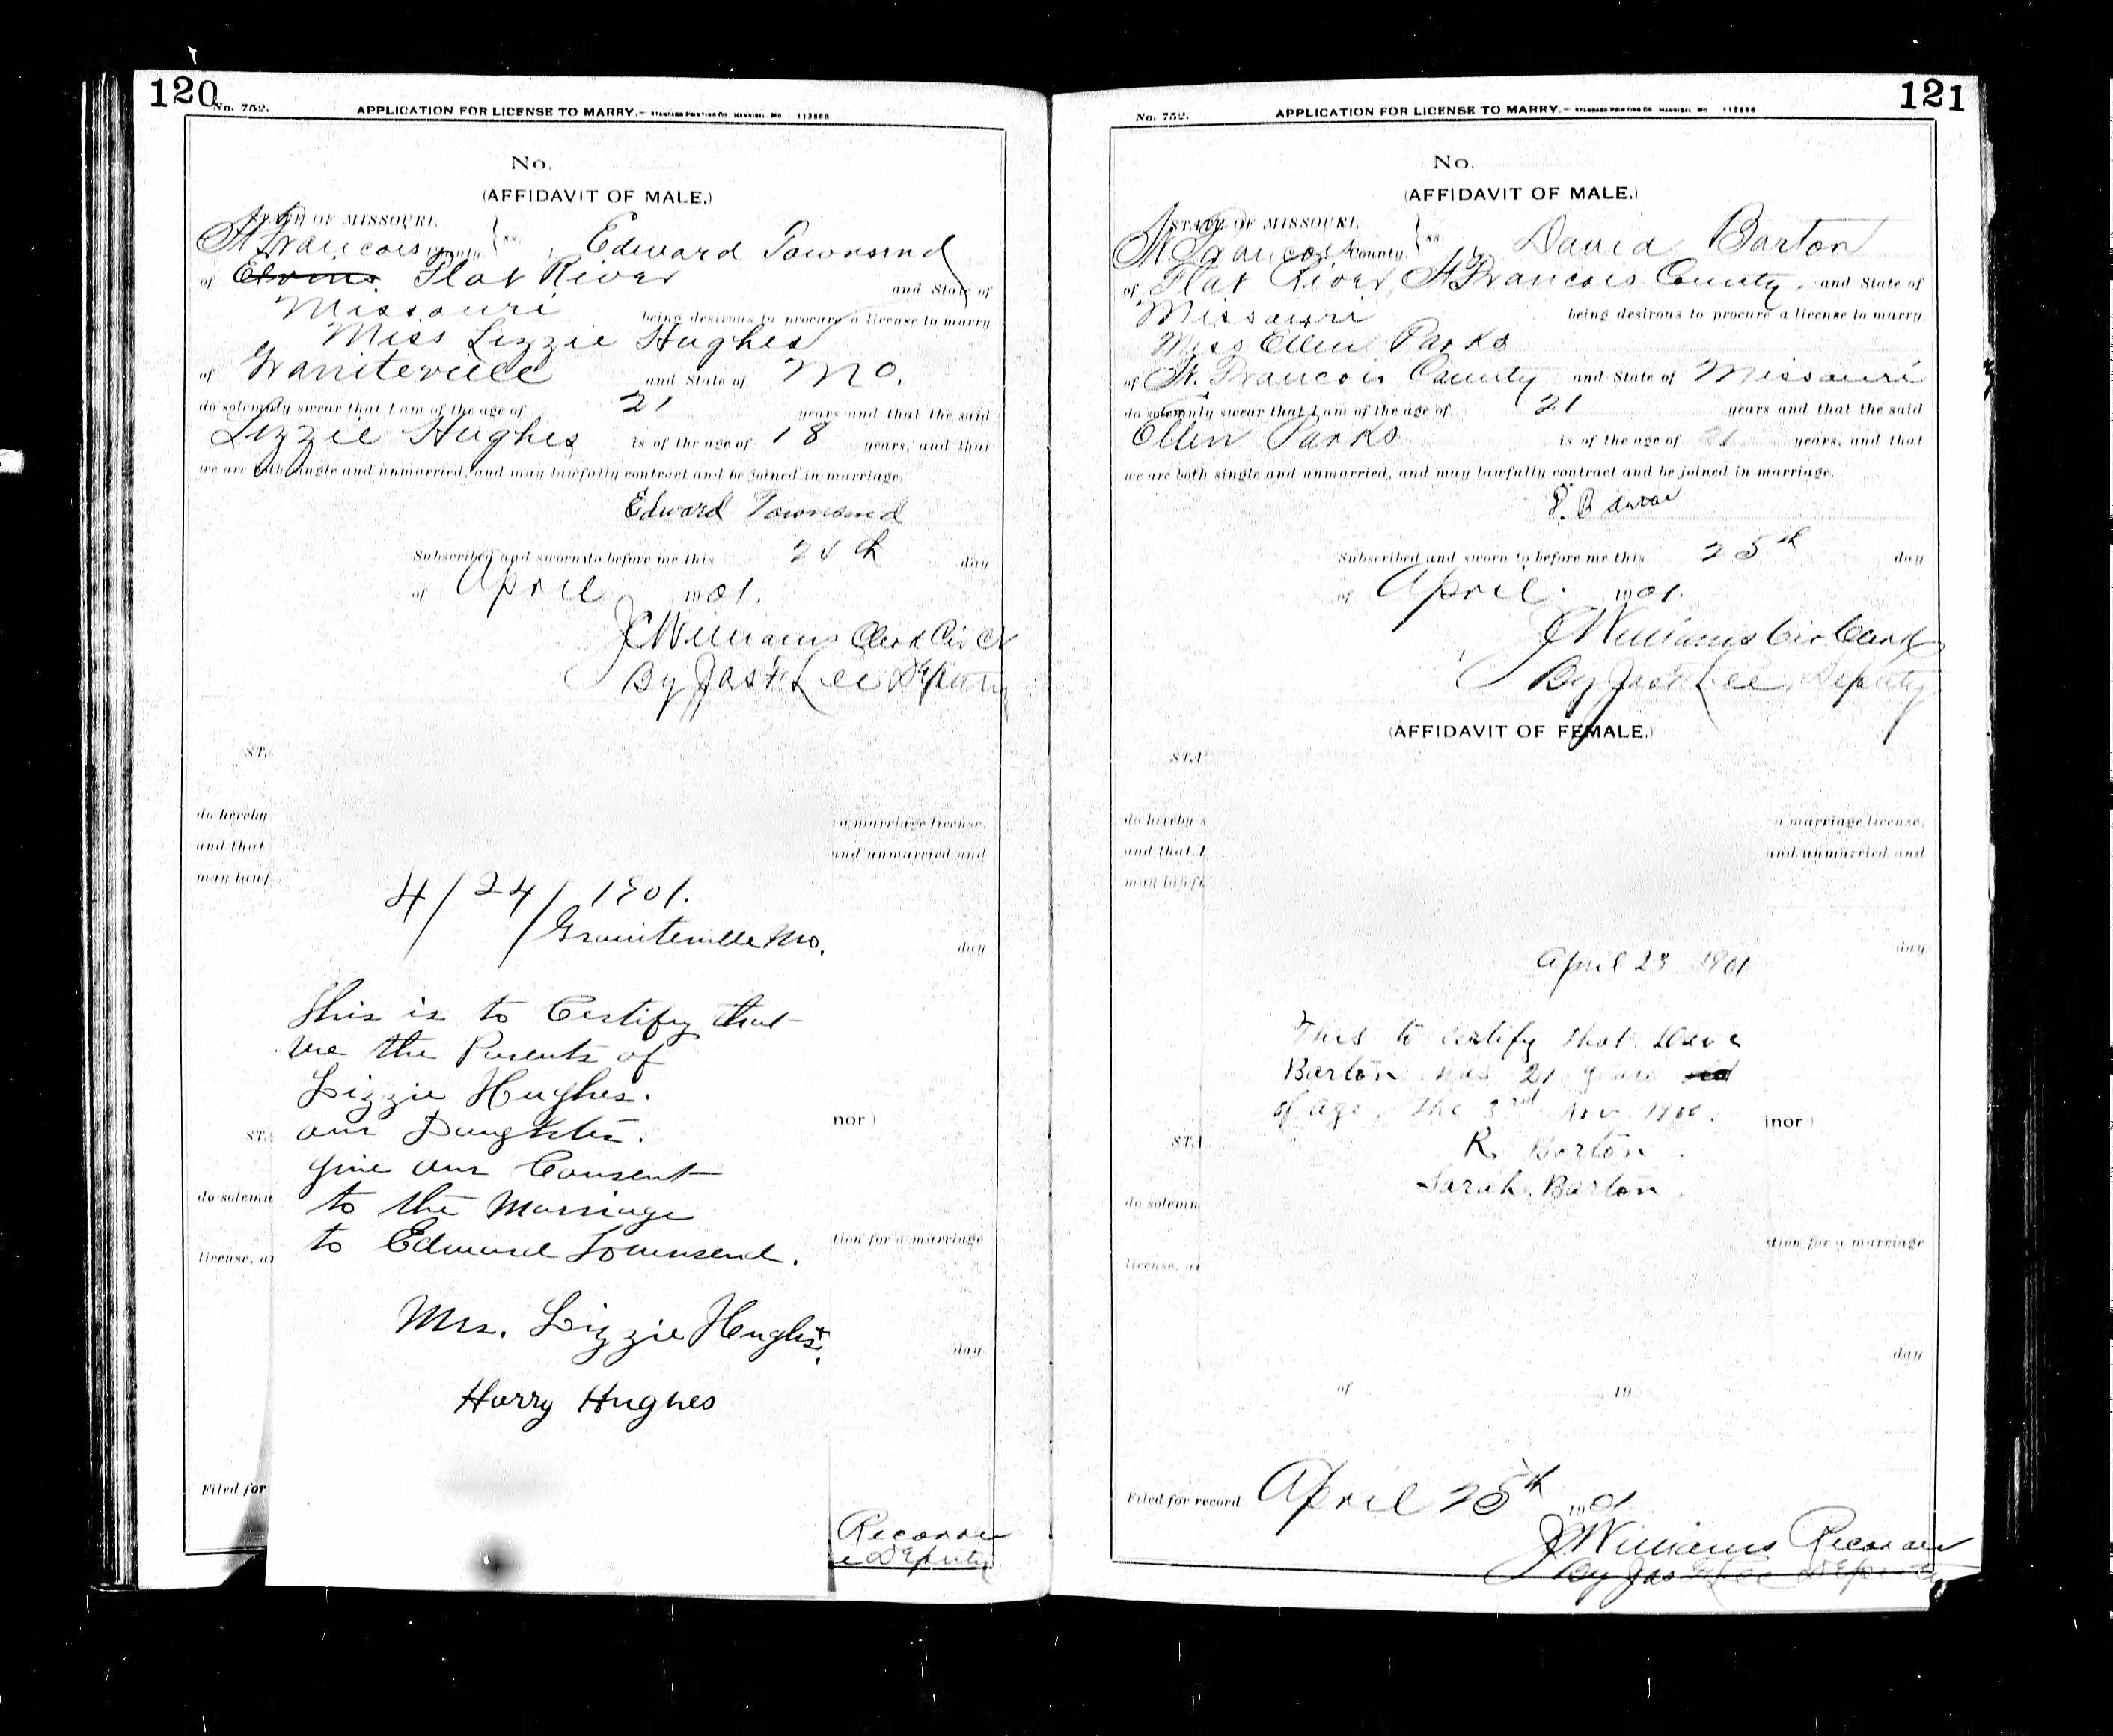 120
No. 752.
APPLICATION FOR LICENSE TO MARRY.— STANDARD PRINTING CO. HANNIBAL MO 113886
No.
(AFFIDAVIT OF MALE.)
STATE OF MISSOURI,
St Francois County } ss. I, Edward Townsend
of Elvins Flat River and State of
Missouri being desirous to procure a license to marry
Miss Lizzie Hughes
of Graniteville and State of Mo.
do solemnly swear that I am of the age of 21 years and that the said
Lizzie Hughes is of the age of 18 years, and that
we are both single and unmarried, and may lawfully contract and be joined in marriage.
Edward Townsend
Subscribed and sworn to before me this 24th day
of April 1901.
J C Williams Clerk Cir Ct
By Jas H Lee Deputy
STA
do hereby
a marriage license,
and that
and unmarried and
may lawf
4/24/1901.
Graniteville Mo.
day
This is to Certify that
we the Parents of
Lizzie Hughes.
our Daughter.
nor)
STA
give our Consent
to the Marriage
do solemn
to Edward Townsend.
tion for a marriage
license, an
Mrs. Lizzie Hughes
day
Harry Hughes
Filed for
Recorder
e Deputy
121
No. 752.
APPLICATION FOR LICENSE TO MARRY.— STANDARD PRINTING CO. HANNIBAL MO 113886
No.
(AFFIDAVIT OF MALE.)
STATE OF MISSOURI,
St. Francois County } ss I, David Barton
of Flat River, St Francois County, and State of
Missouri being desirous to procure a license to marry
Miss Ellen Parks
of St. Francois County and State of Missouri
do solemnly swear that I am of the age of 21 years and that the said
Ellen Parks is of the age of 21 years, and that
we are both single and unmarried, and may lawfully contract and be joined in marriage.
Subscribed and sworn to before me this 25th day
of April. 1901.
J C Williams Cir Clerk
By Jas H Lee Deputy
(AFFIDAVIT OF FEMALE.)
STA
do hereby s
a marriage license,
and that I
and unmarried and
may lawfu
April 23 1901
day
This to certify that Dave
Barton was 21 years
of age, the 3rd Nov. 1900.
inor)
R. Barton
STA
Sarah Barton
do solemn
ation for a marriage
license, an
day
of 19
Filed for record April 25th 1901
J C Williams Recorder
By Jas H Lee Deputy